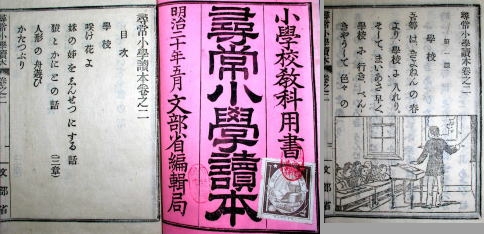 尋常小學讀本卷之二
第一課
學校
吾等は、きよねんの春
より、學校に入れり。
そして、まいあさ早く、
學校に行き、べん
きやうして、色々の
文部省
小學校敎科用書
尋常小學讀本
明治二十年五月 文部省編輯局
尋常小學讀本卷之二
目次
學校
咲け花よ
妹の姉をしんせつにする話
猿とかにとの話 (三章)
人形の舟遊び
かたつぶり
文部省